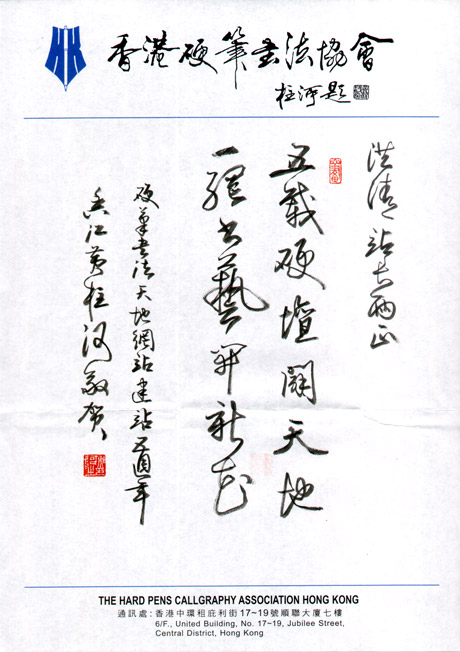 香港硬筆書法協會
柱河題
洪清站长
五載硬壇闢天地
一書藝開新花
硬筆書法天地網站建站五週年
香江黃柱河敬賀
THE HARD PENS CALLGRAPHY ASSOCIATION HONG KONG
通訊處:香港中環租庇利街17~19號順聯大廈七樓
6/F., United Building, No. 17~19, Jubilee Street,
Central District, Hong Kong